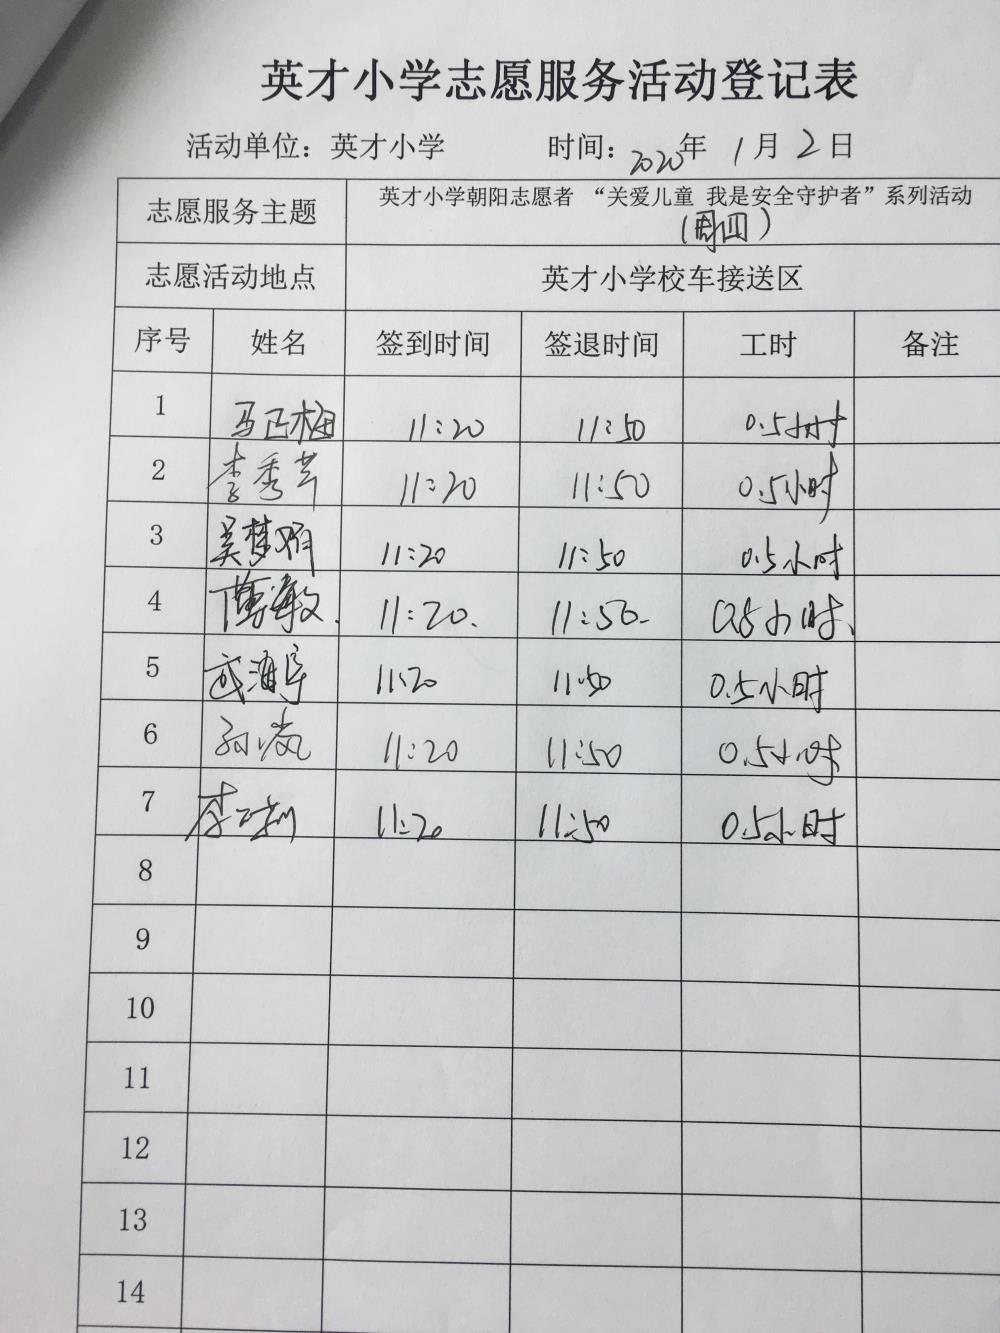 英才小学志愿服务活动登记表
活动单位：英才小学 时间：2020年 1月 2日
志愿服务主题 英才小学朝阳志愿者 “关爱儿童 我是安全守护者”系列活动
（周四）
志愿活动地点 英才小学校车接送区
序号 姓名 签到时间 签退时间 工时 备注
1 马正梅 11:20 11:50 0.5小时
2 李秀芹 11:20 11:50 0.5小时
3 吴梦娟 11:20 11:50 0.5小时
4 11:20. 11:50. 0.5小时.
5 11:20 11:50 0.5小时
6 孙岚 11:20 11:50 0.5小时
7 李 11:20 11:50 0.5小时
8
9
10
11
12
13
14